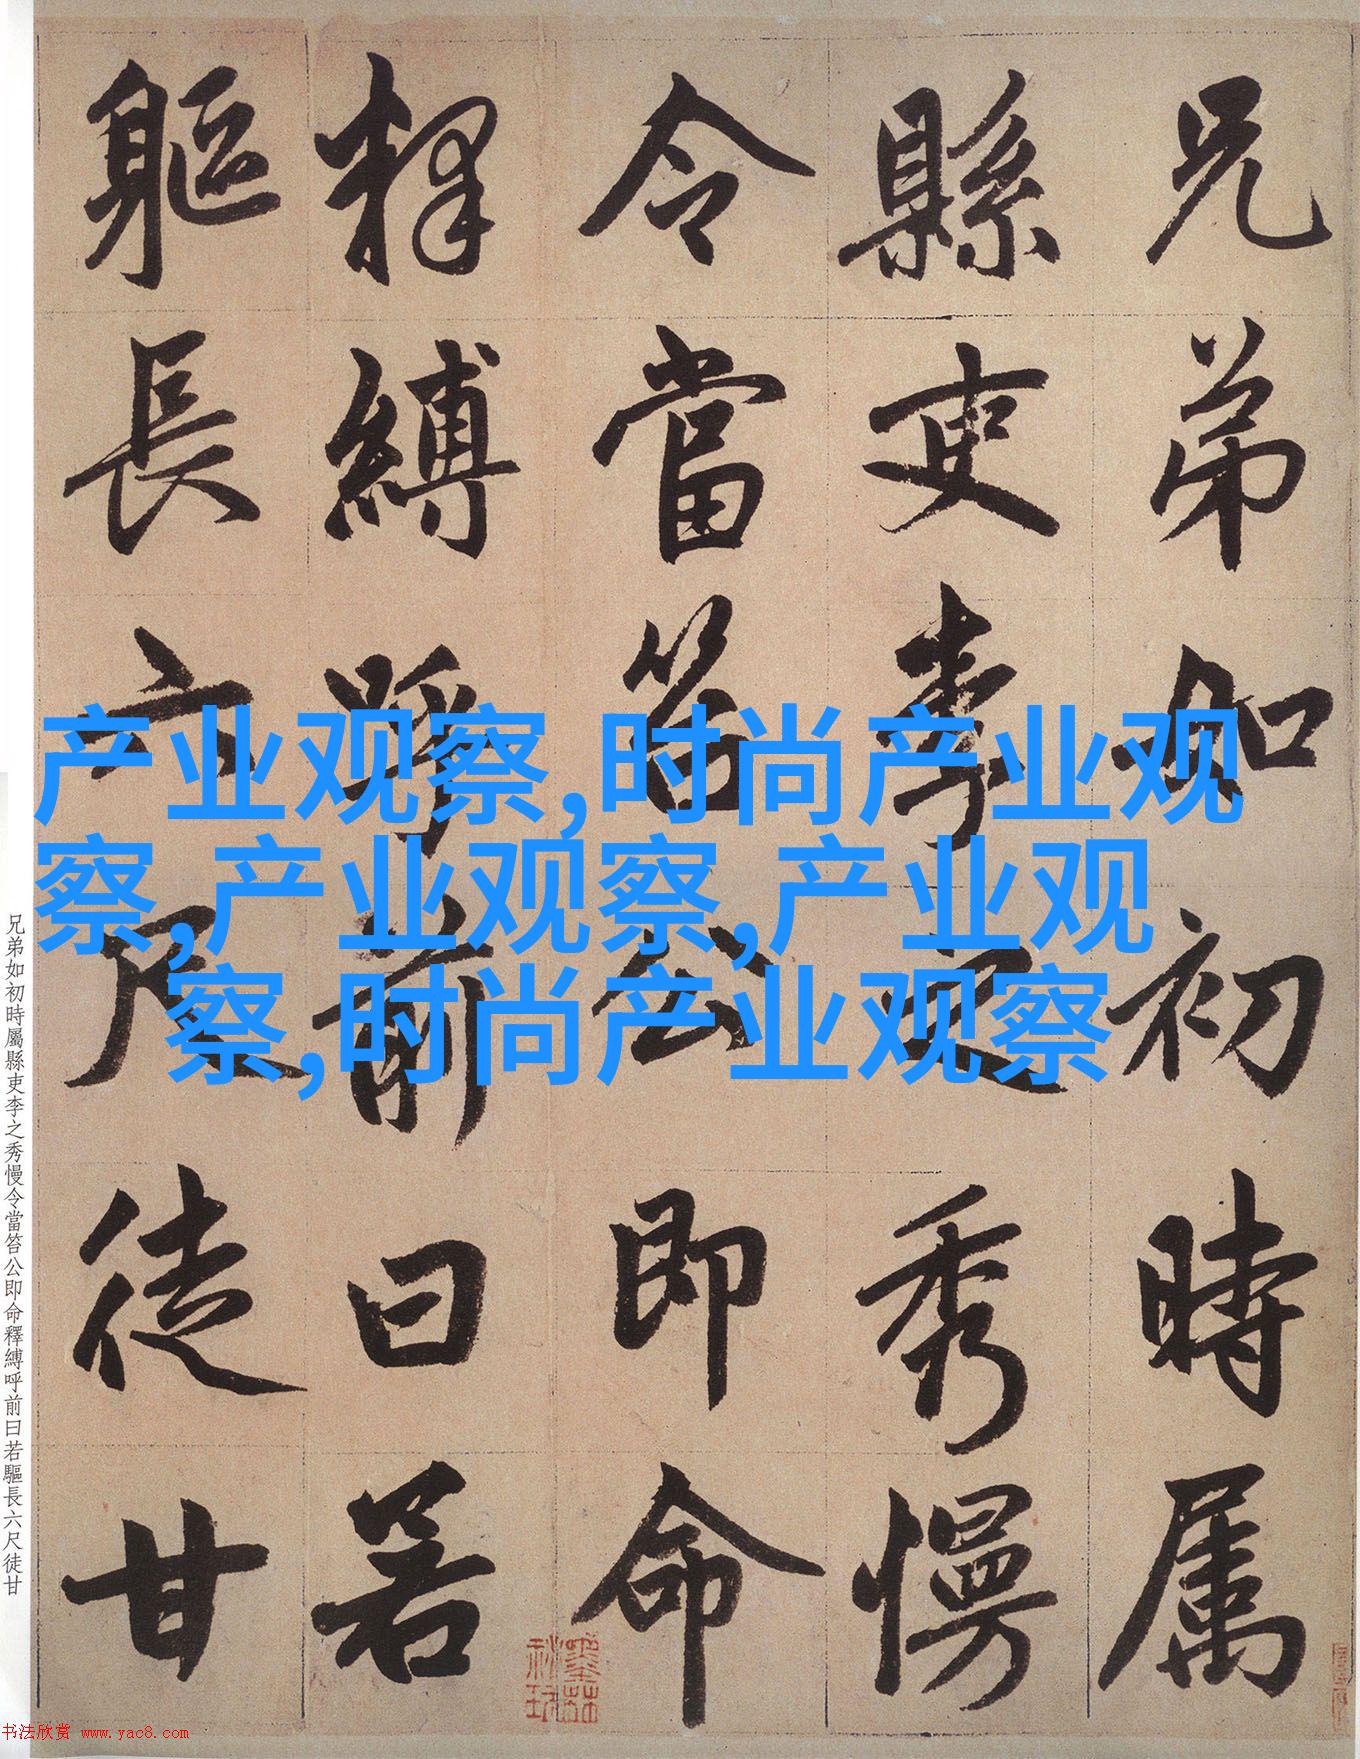 兄弟如初時属
縣吏李之秀慢
令當笞公即命
釋縛呼前曰若
軀長六尺徒甘
产业观察,时尚产业观
察,产业观察,产业观
察,时尚产业观察
兄弟如初時屬縣吏李之秀慢令當笞公即命釋縛呼前曰若驅長六尺徒甘
书法欣赏 www.yac8.com